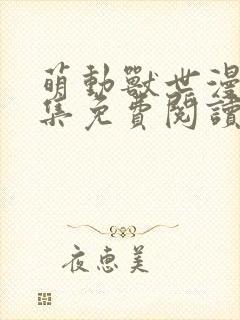 萌動獸世漫
集免費閱讀
夜惠美